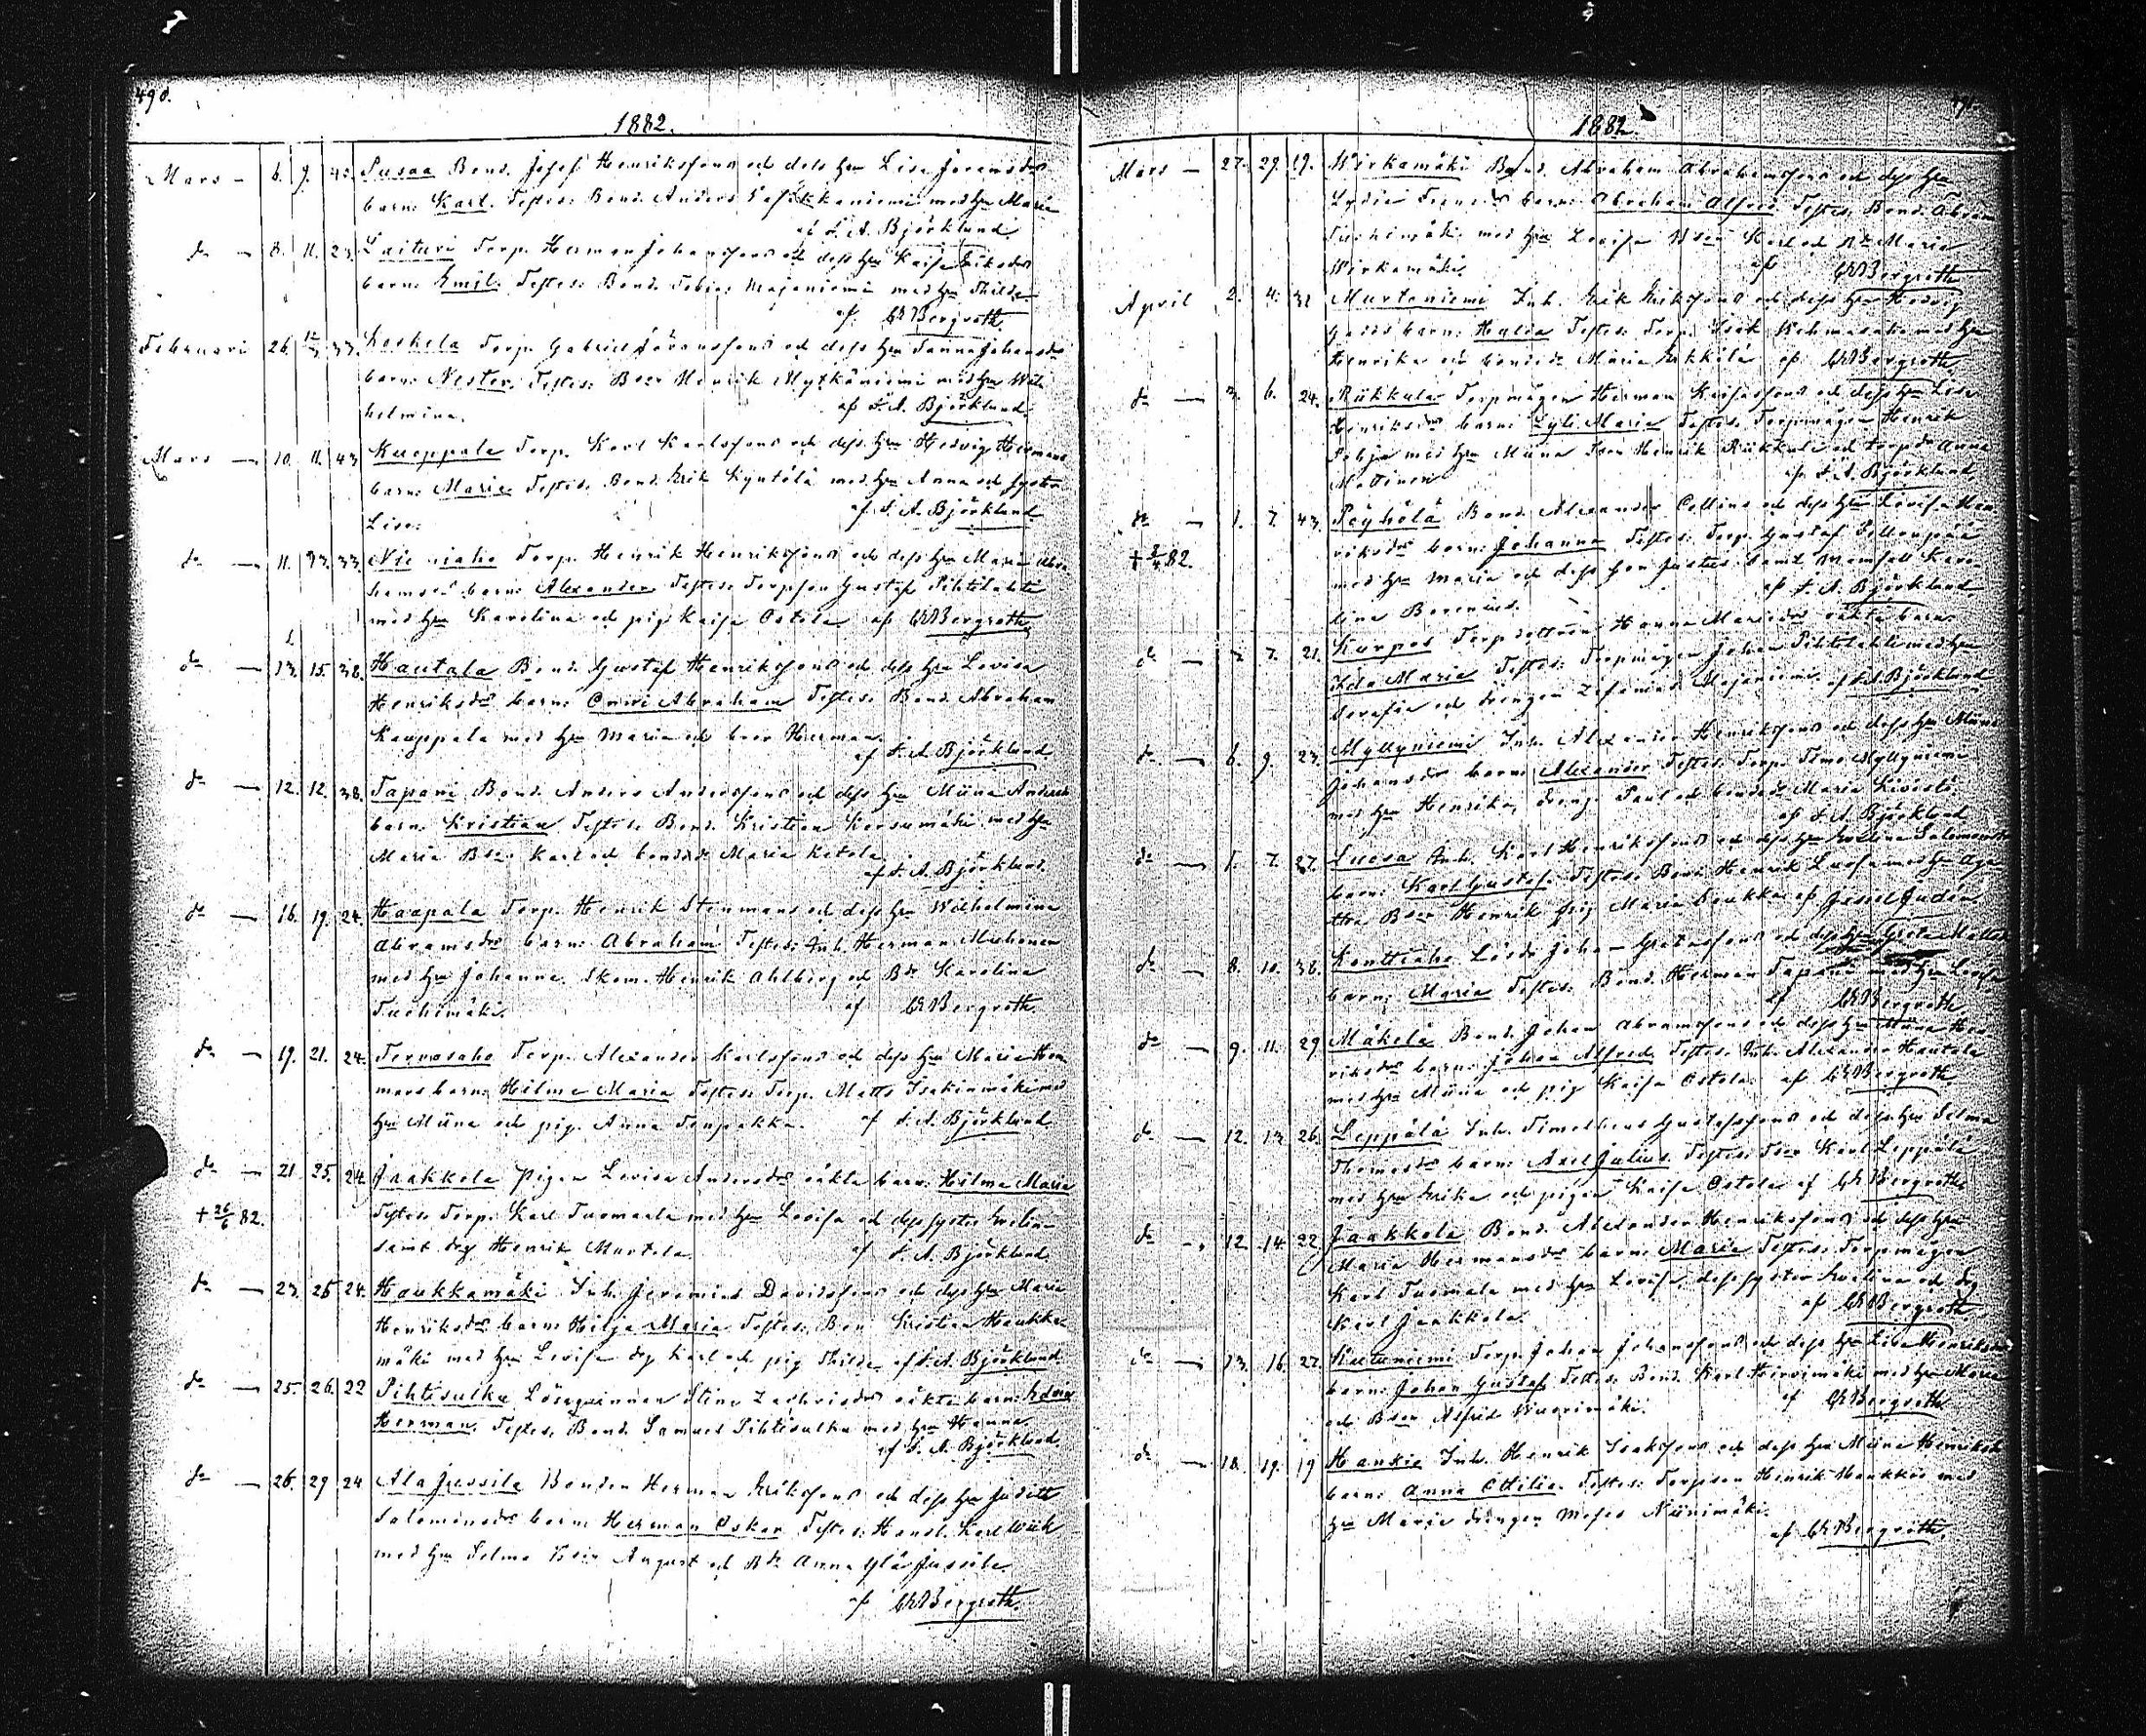 490.
1882.
Mars — 6. 9. 40. Susaa Bond. Josef Henriksson och dess Hu Lisa Jöransdr
barn: Karl. Testes: Bond. Anders med Hu Maria
af F. A. Björklund
do — 8. 11. 23. Laituri Torp. Herman Johansson och dess Hu Kaisa Eriksdr
barn: Emil. Testes: Bond. Tobias Majaniemi med Hu Thilda
af G. Bergroth.
Februari 26. 12/3 33. Koskela Torp. Gabriel Göransson och dess Hu Sanna Johansdr
barn: Nestor. Testes: Bson Henrik Mytkäniemi med Hu Wil-
helmina. af F. A. Björklund
Mars — 10. 11. 43. Kuoppala Torp. Karl Karlsson och dess Hu Hedvig Hermans
barn: Maria Testes: Bond. Erik Kyntölä med Hu Anna och syster
Lisa. af F. A. Björklund
do — 11. 33. Torp. Henrik Henriksson och dess Hu Maria Abra-
hamsdr barn: Alexander Testes: Torpson Gustaf Pihtilahti
med Hu Karolina och pig. Kaisa Ostola af G. Bergroth
do — 13. 15. 38. Hautala Bond. Gustaf Henriksson och dess Hu Lovisa
Henriksdr barn: Onni Abraham Testes: Bond. Abraham
Kauppala med Hu Maria och bror Herman.
af F. A. Björklund
do — 12. 12. 38. Tapani Bond. Anders Andersson och dess Hu Miina Andersdr
barn: Kristian Testes: Bond. Kristian Korsumäki med Hu
Maria Bson Karl och bondedr Maria Ketola
af F. A. Björklund
do — 16. 19. 24. Haapala Torp. Henrik Stenman och dess Hu Wilhelmina
Abramsdr barn: Abraham Testes: Inh. Herman Muhonen
med Hu Johanna. Skom. Henrik Ahlberg och Bdr Karolina
Tuohimäki. af G. Bergroth
do — 19. 21. 24. Tervasaho Torp. Alexander Karlsson och dess Hu Maria Her-
mans barn: Hilma Maria Testes: Torp. Matts Isakinmäki med
Hu Miina och pig. Anna af F. A. Björklund
do — 21. 25. 24. Jaakkola Pigan Lovisa Andersdr oäkta barn: Hilma Maria
† 26/6 82. Testes: Torp. Karl Tuomala med Hu Lovisa och dess syster Evelina
samt dreg Henrik Murtola. af F. A. Björklund
do — 23. 26 24. Haukkamäki Inh. Jeremias Davidsson och dess Hu Maria
Henriksdr barn: Hilja Maria Testes: Bon. Kristian Haukka-
mäki med Hu Lovisa dreg Karl och pig Thilda af F. A. Björklund
do — 25. 26. 22 Pihtisulku Lösqvinnan Stina Zachrisdr oäkta barn: Edvin
Herman. Testes. Bond. Samuel Pihtisulku med Hu Hanna
af F. A. Björklund
do — 26. 29 24 Ala Jussila Bonden Herman Eriksson och dess Hu Juditt
Salomonsdr barn: Herman Oskar Testes: Handl. Karl Wiik
med Hu Selma Bson August och Bdr Anna Ylä Jussila.
af G. Bergroth.
1882
Mars — 27. 29. 19. Wirkamäki Bond. Abraham Abrahamsson och dess Hu
Lydia barn: Abraham Alfred Testes: Bond. Abram
Tuohimäki med Hu Lovisa Bson Karl och Bdr Maria
Wirkamäki. af G. Bergroth
April 2. 4. 31 Murtoniemi Inh. Erik Eriksson och dess Hu Hedvig
barn: Testes: Torp. Isak med Hu
Henrika och bondedr Maria Erkkilä af G. Bergroth
do — 3. 6. 24. Riikkula Torpmågen Herman Kaisasson och dess Hu Lisa
Henriksdr barn: Lyli Maria Testes: Torpmågen Henrik
Pohja med Hu Miina Tson Henrik Riikkula och torpdr Anna
Mattinen af F. A. Björklund
do — 1. 7. 43. Pöyhölä Bond. Alexander Collins och dess Hu Lovisa Hen-
† 82. riksdr barn: Johanna Testes: Torp. Gustaf Sillanpää
med Hu Maria och dess son Justus samt Mamsell Karo-
lina Borenius. af F. A. Björklund
do — 7. 21. Kurpos Torpdottren Hanna Mariasdr oäkta barn
Ida Maria Testes: Torpmågen Johan Pihtilahti med Hu
Serafia och drängen Zefanias Majaniemi. af F. A. Björklund
do — 6. 9. 23. Myllyniemi Inh. Alexander Henriksson och dess Hu Miina
Johansdr barn: Alexander Testes: Torp. Myllyniemi
med Hu Henrika, dräng. Paul och bondedr Maria Kivistö
af F. A. Björklund
do — 7. 27. Luosa Inh. Karl Henriksson och dess Hu Evelina Salomonsdr
barn: Karl Gustaf Testes: Bond. Henrik Luosa med Hu Aga-
tha Bson Henrik pig Maria
do — 8. 10. 38. Konttiaho Lösdr Johan och dess Hu Greta Matts
barn: Maria Testes: Bond. Herman Tapani med Hu Lovisa
af G. Bergroth
do — 9. 11. 29 Mäkelä Bond. Johan Abramsson och dess Hu Miina Hen-
riksdr barn: Johan Alfred Testes: Inh. Alexander Hautala
med Hu Miina och pig Kaisa Ostola. af G. Bergroth
do — 12. 13. 26. Leppälä Inh. Timotheus Gustafsson och dess Hu Selma
Thomasdr barn: Axel Julius. Testes: Tson Karl Leppälä
med Hu Erika och pigan Kaisa Ostola af G. Bergroth
do — 12. 14. 22. Jaakkola Bond. Alexander Henriksson och dess Hu
Maria Hermansdr barn: Maria Testes: Torpmågen
Karl Tuomala med Hu Lovisa, dess syster Evelina och dreg
Karl Jaakkola. af G. Bergroth
do — 13. 16. 27. Torp. Johan Johansson och dess Hu Lisa Henriksdr
barn: Johan Gustaf Testes: Bond. Karl Hirvimäki med Hu Maria
och Bson Alfred Wuorimäki. af G. Bergroth
do — 18. 19. 19 Hankio Inh. Henrik Isaksson och dess Hu Miina Henriksdr
barn: Anna Ottilia. Testes: Torpson Henrik med
Hu Maria drängen Moses Niinimäki.
af G. Bergroth